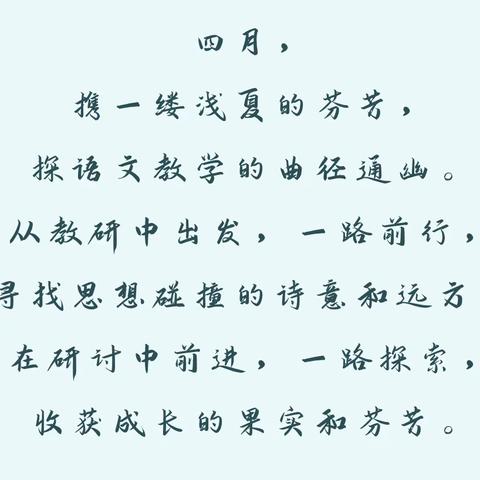 四月，
携一缕浅夏的芬芳，
探语文教学的曲径通幽。
从教研中出发，一路前行，
寻找思想碰撞的诗意和远方
在研讨中前进，一路探索，
收获成长的果实和芬芳。